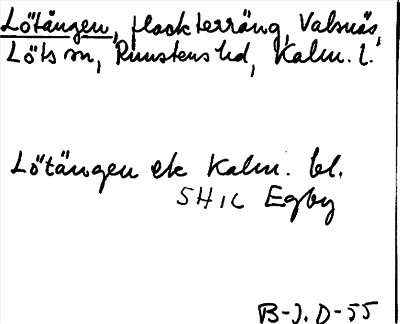 Lötängen, flackterräng, Valsnäs,
Löts sn, Runstens hd, Kalm. l.
Lötängen ek Kalm. bl.
5H1c Egby
B-J. D-55